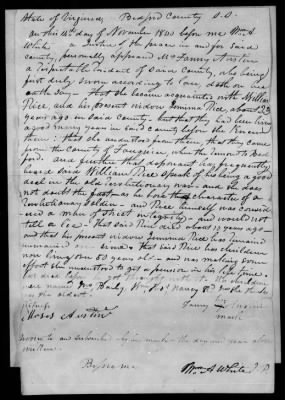 State of Virginia, Bedford County S.S.
On this 14th day of November 1840 before me Wm A
White a Justice of the peace in and for said
county, personally appeared Mrs Fanny Austin
a respectable resident of said county, who being
first duly sworn according to law, doth on her
oath say - that she became acquainted with William
Rice and his present widow Jemima Rice, about
years ago in said County - but they had been living
a good many years in said county before she knew
them - that she understood from them, that they came
from the County of Fauquier when they came to Bed
ford. and further that deponent has frequently
heard said William Rice speak of his being a good
deal in the old revolutionary war - and she does
not doubt the fact - as he bore the character of a
revolutionary soldier - and Rice himself was consid
ered a man of strict integrity - and would not
tell a lie - that said Rice died about 13 years ago -
and that his present widow Jemima Rice has remained
unmarried ever since - that said Rice has children
now living over 50 years old - and was making some
effort she understood to get a pension in his life time.
the children
are named
the oldest
Fanny her Austin
mark
Moses Austin
Sworn to and subscribed the day and year above
written
Before me
Wm A White J.P.